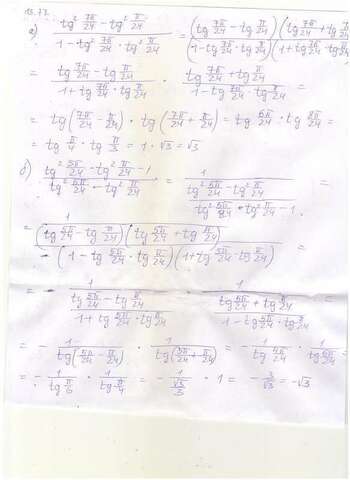 18.73.
а) (tg² 7π/24 - tg² π/24) / (1 - tg² 7π/24 · tg² π/24) = (tg 7π/24 - tg π/24)(tg 7π/24 + tg π/24) / (1 - tg 7π/24 · tg π/24)(1 + tg 7π/24 · tg π/24)
(tg 7π/24 - tg π/24) / (1 + tg 7π/24 · tg π/24) · (tg 7π/24 + tg π/24) / (1 - tg 7π/24 · tg π/24) =
= tg(7π/24 - π/24) · tg(7π/24 + π/24) = tg 6π/24 · tg 8π/24 =
= tg π/4 · tg π/3 = 1 · √3 = √3
б) (tg² 5π/24 · tg² π/24 - 1) / (tg² 5π/24 - tg² π/24) = 1 / ((tg² 5π/24 - tg² π/24) / (tg² 5π/24 · tg² π/24 - 1)) =
= 1 / ((tg 5π/24 - tg π/24)(tg 5π/24 + tg π/24) / -(1 - tg 5π/24 · tg π/24)(1 + tg 5π/24 · tg π/24)) =
= - 1 / ((tg 5π/24 - tg π/24) / (1 + tg 5π/24 · tg π/24)) · 1 / ((tg 5π/24 + tg π/24) / (1 - tg 5π/24 · tg π/24)) =
= - 1 / tg(5π/24 - π/24) · 1 / tg(5π/24 + π/24) = - 1 / tg 4π/24 · 1 / tg 6π/24 =
= - 1 / tg π/6 · 1 / tg π/4 = - 1 / (√3/3) · 1 = - 3/√3 = -√3